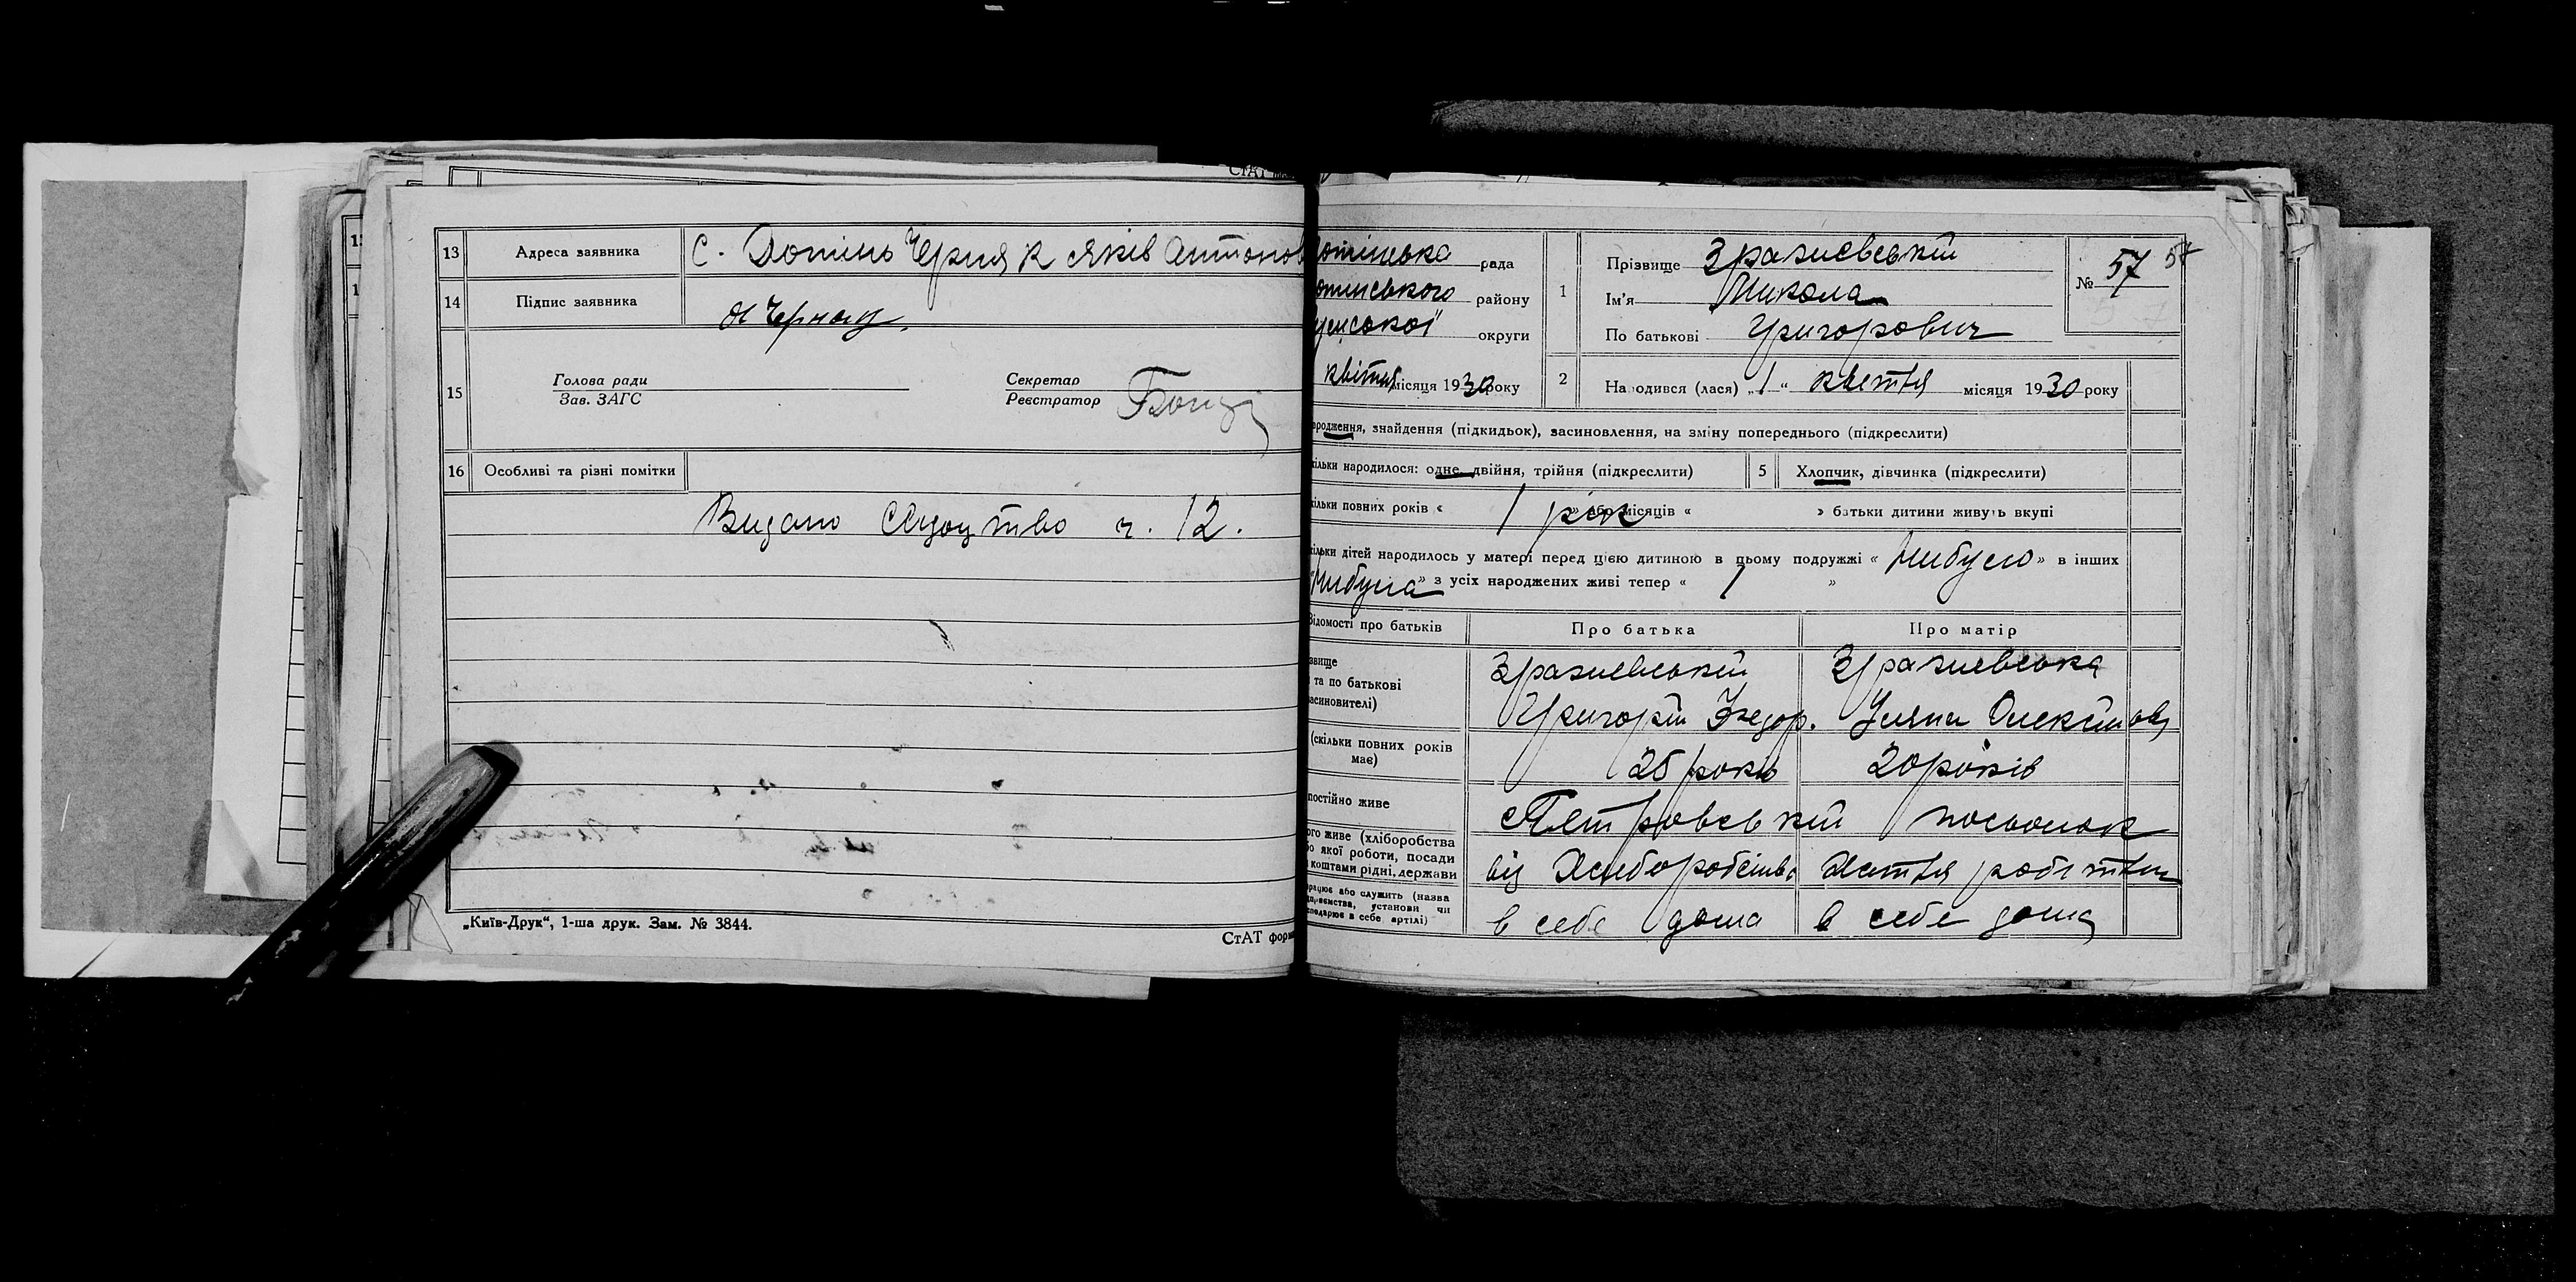 13 Адреса заявника С. Дотинь Черняк Яків Антонов
14 Підпис заявника Я Черняк.
15 Голова ради
Зав. ЗАГС
Секретар
Реєстратор
16 Особливі та різні помітки
Видано свідоцтво ч. 12.
„Київ-Друк“, 1-ша друк. Зам. № 3844.
СтАТ форм
рада
району
округи
квітня місяця 1930 року
1 Прізвище Зражевський
Ім'я Микола
По батькові Григорович
№ 57 57
2 Народився (лася) „1“ квітня місяця 1930 року
ородження, знайдення (підкидьок), засиновлення, на зміну попереднього (підкреслити)
ільки народилося: одне, двійня, трійня (підкреслити)
5 Хлопчик, дівчинка (підкреслити)
ільки повних років « 1 рік » або місяців « » батьки дитини живуть вкупі
ільки дітей народилось у матері перед цією дитиною в цьому подружжі « Нибуло » в інших
« Нибула » з усіх народжених живі тепер « 1 »
Відомості про батьків Про батька Про матір
звище
та по батькові
асиновителі)
Зражевський Зражевська
Григорій Федор. Уляна Олексіїов
(скільки повних років
має)
25 років 20 років
постійно живе Петровський посьолок
ого живе (хліборобства
бо якої роботи, посади
коштами рідні, держави
від Хліборобства
рацює або служить (назва
установи чи
сподарює в себе артілі)
в себе дома в себе дома